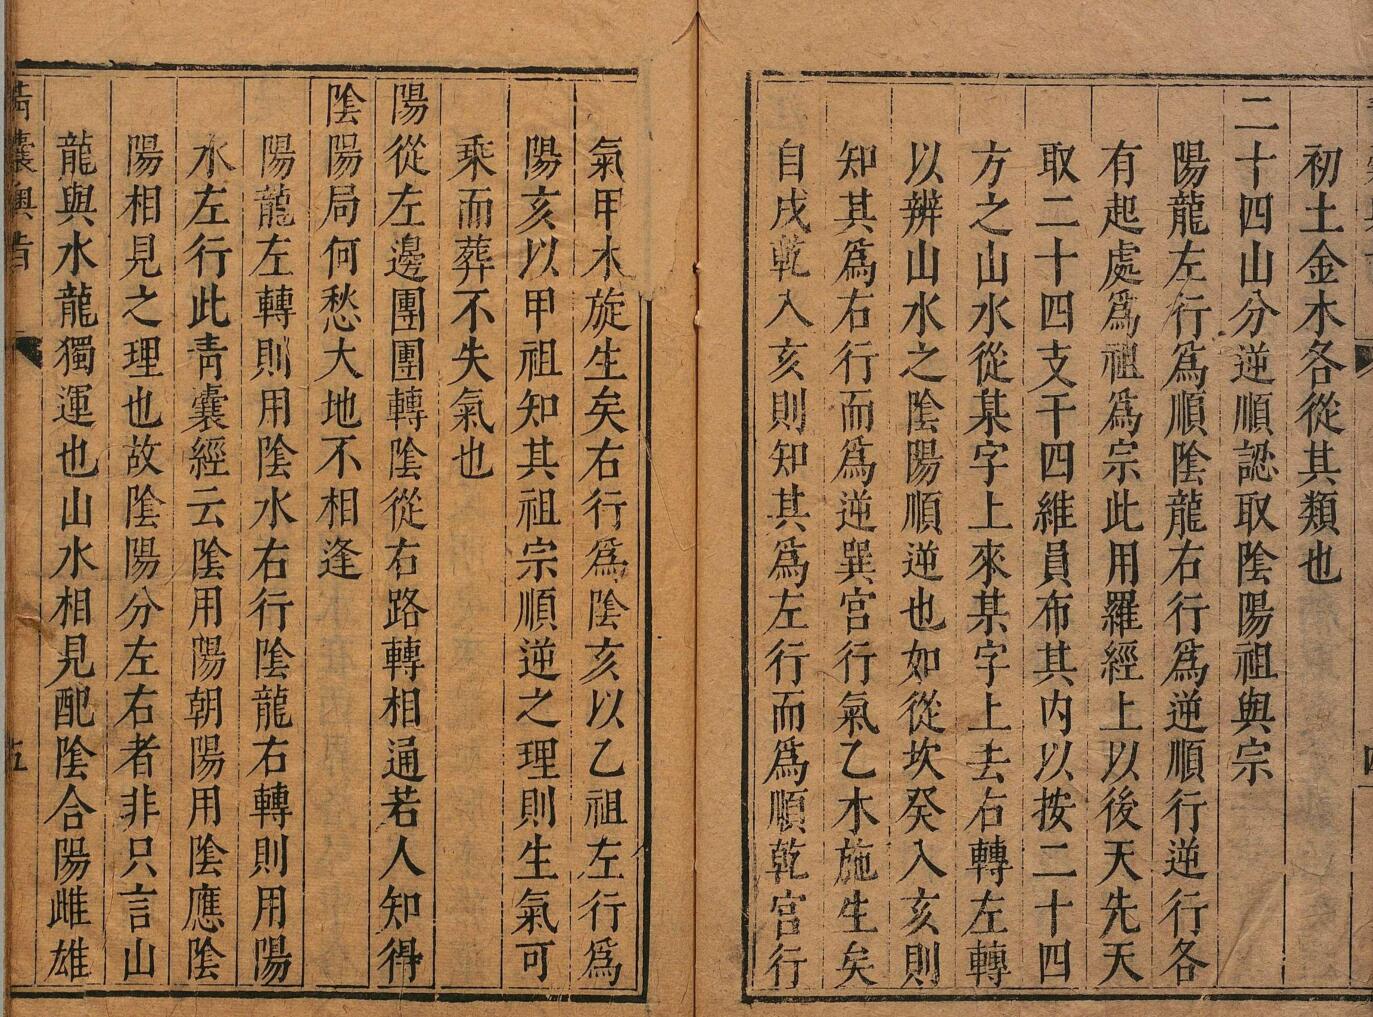 初土金木各從其類也
二十四山分逆順認取陰陽祖與宗
陽龍左行爲順陰龍右行爲逆順行逆行各
有起處爲祖爲宗此用羅經上以後天先天
取二十四支干四維員布其内以按二十四
方之山水從某字上來某字上去右轉左轉
以辨山水之陰陽順逆也如從坎癸入亥則
知其爲右行而爲逆巽宫行氣乙木施生矣
自戌乾入亥則知其爲左行而爲順乾宫行
氣甲木旋生矣右行爲陰亥以乙祖左行爲
陽亥以甲祖知其祖宗順逆之理則生氣可
乘而葬不失氣也
陽從左邊團團轉陰從右路轉相通若人知得
陰陽局何愁大地不相逢
陽龍左轉則用陰水右行陰龍右轉則用陽
水左行此青囊經云陰用陽朝陽用陰應陰
陽相見之理也故陰陽分左右者非只言山
龍與水龍獨運也山水相見配陰合陽雌雄
青囊奧旨
五